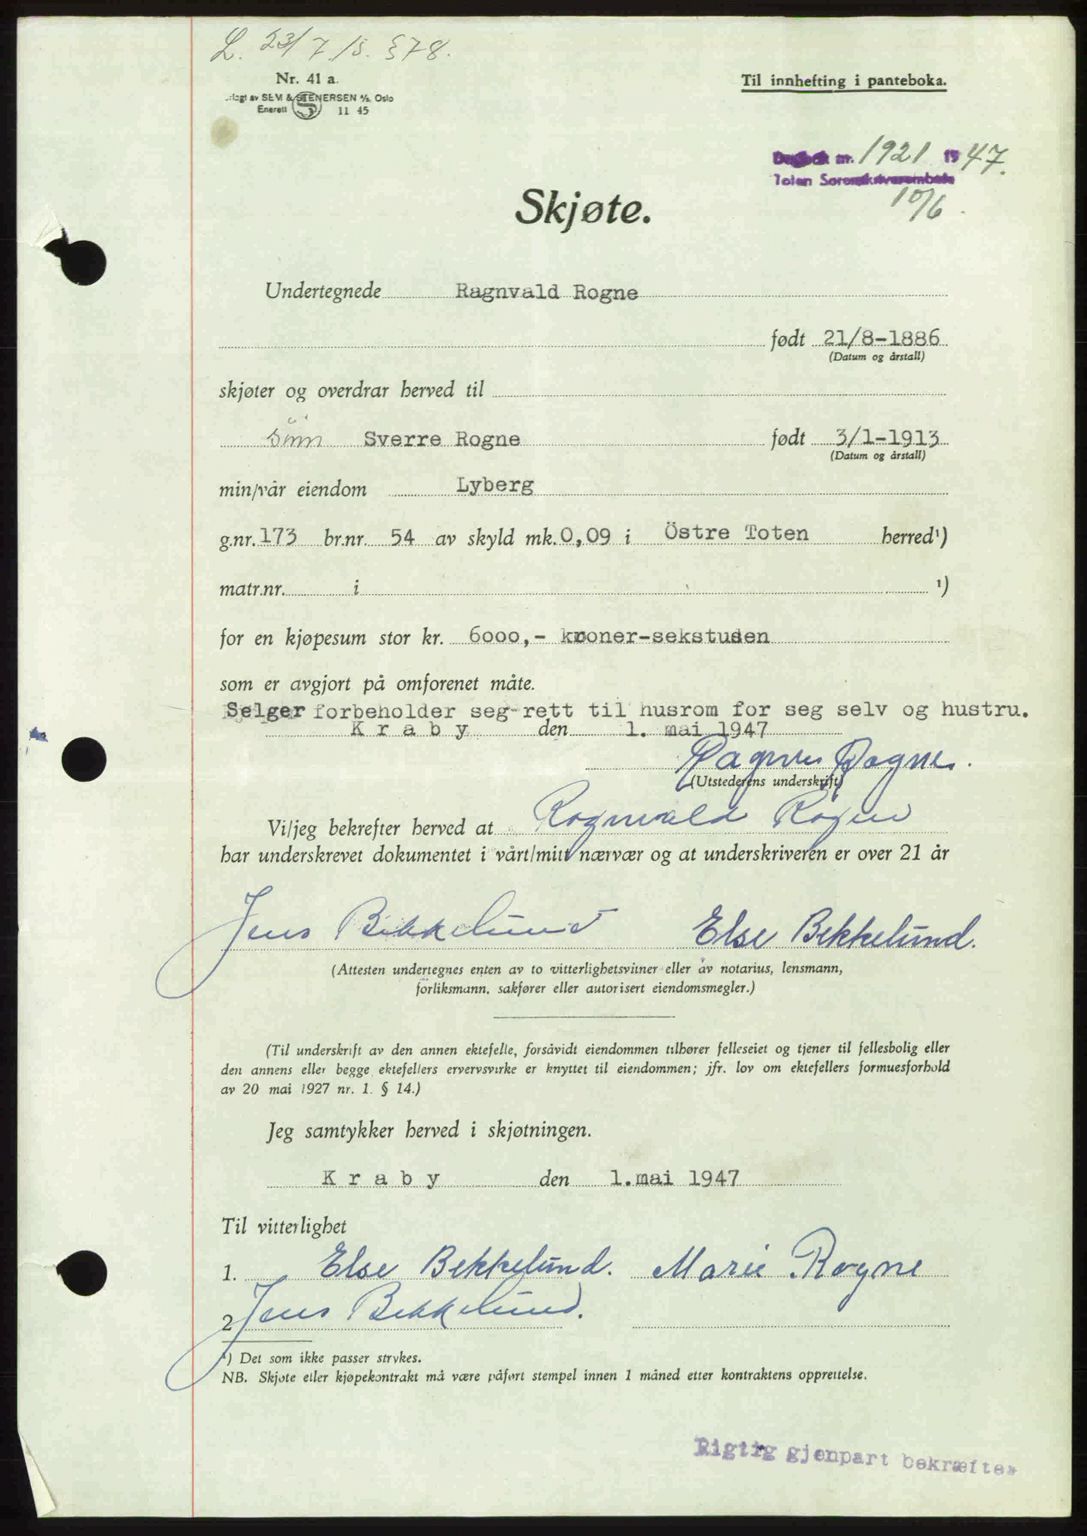 L. 23/7 15. § 78.
Nr. 41 a.
Til innhefting i panteboka.
av SEM & STENERSEN A/S, Oslo
Enerett 11 45
Dagbok nr. 1921 1947.
Toten Sorenskriverembete
10/6.
Skjøte.
Undertegnede Ragnvald Rogne
født 21/8-1886
(Datum og årstall)
skjøter og overdrar herved til
Sverre Rogne født 3/1-1913
(Datum og årstall)
min/vår eiendom Lyberg
g.nr. 173 br.nr. 54 av skyld mk. 0,09 i Östre Toten herred¹)
matr.nr. i ¹)
for en kjøpesum stor kr. 6000,- kroner-sekstusen
som er avgjort på omforenet måte.
Selger forbeholder seg rett til husrom for seg selv og hustru.
Kraby den 1. mai 1947
Rogne.
(Utstederens underskrift)
Vi/jeg bekrefter herved at Ragnvald Rogne
har underskrevet dokumentet i vårt/mitt nærvær og at underskriveren er over 21 år
Jens Bekkelund Else Bekkelund.
(Attesten undertegnes enten av to vitterlighetsvitner eller av notarius, lensmann,
forliksmann, sakfører eller autorisert eiendomsmegler.)
(Til underskrift av den annen ektefelle, forsåvidt eiendommen tilhører felleseiet og tjener til fellesbolig eller
den annens eller begge ektefellers ervervsvirke er knyttet til eiendommen; jfr. lov om ektefellers formuesforhold
av 20 mai 1927 nr. 1. § 14.)
Jeg samtykker herved i skjøtningen.
Kraby den 1.mai 1947
Til vitterlighet
1. Else Bekkelund. Marie Rogne
2 Jens Bekkelund.
¹) Det som ikke passer strykes.
NB. Skjøte eller kjøpekontrakt må være påført stempel innen 1 måned etter kontraktens opprettelse.
Rigtig gjenpart bekræftes